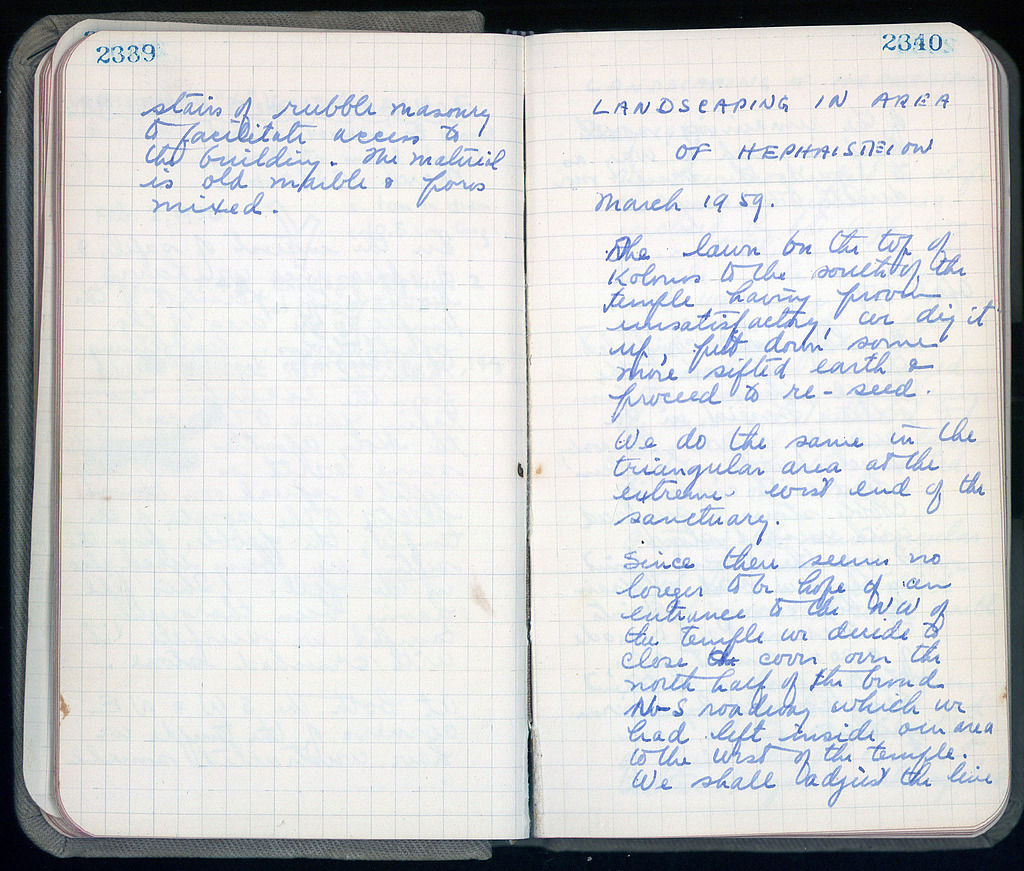 2339
stairs of rubble masonry
to facilitate access to
the building. The material
is old marble & poros
mixed.
2340
LANDSCAPING IN AREA
OF HEPHAISTEION
March 1959.
The lawn on the top of
Kolonos to the south of the
temple having proven
unsatisfactory, we dig it
up, put down some
more sifted earth &
proceed to re-seed.
We do the same in the
triangular area at the
extreme west end of the
sanctuary.
Since there seems no
longer to be hope of an
entrance to the NW of
the temple we decide to
close the cover over the
north half of the broad
N-S roadway which we
had left inside our area
to the west of the temple.
We shall adjust the line